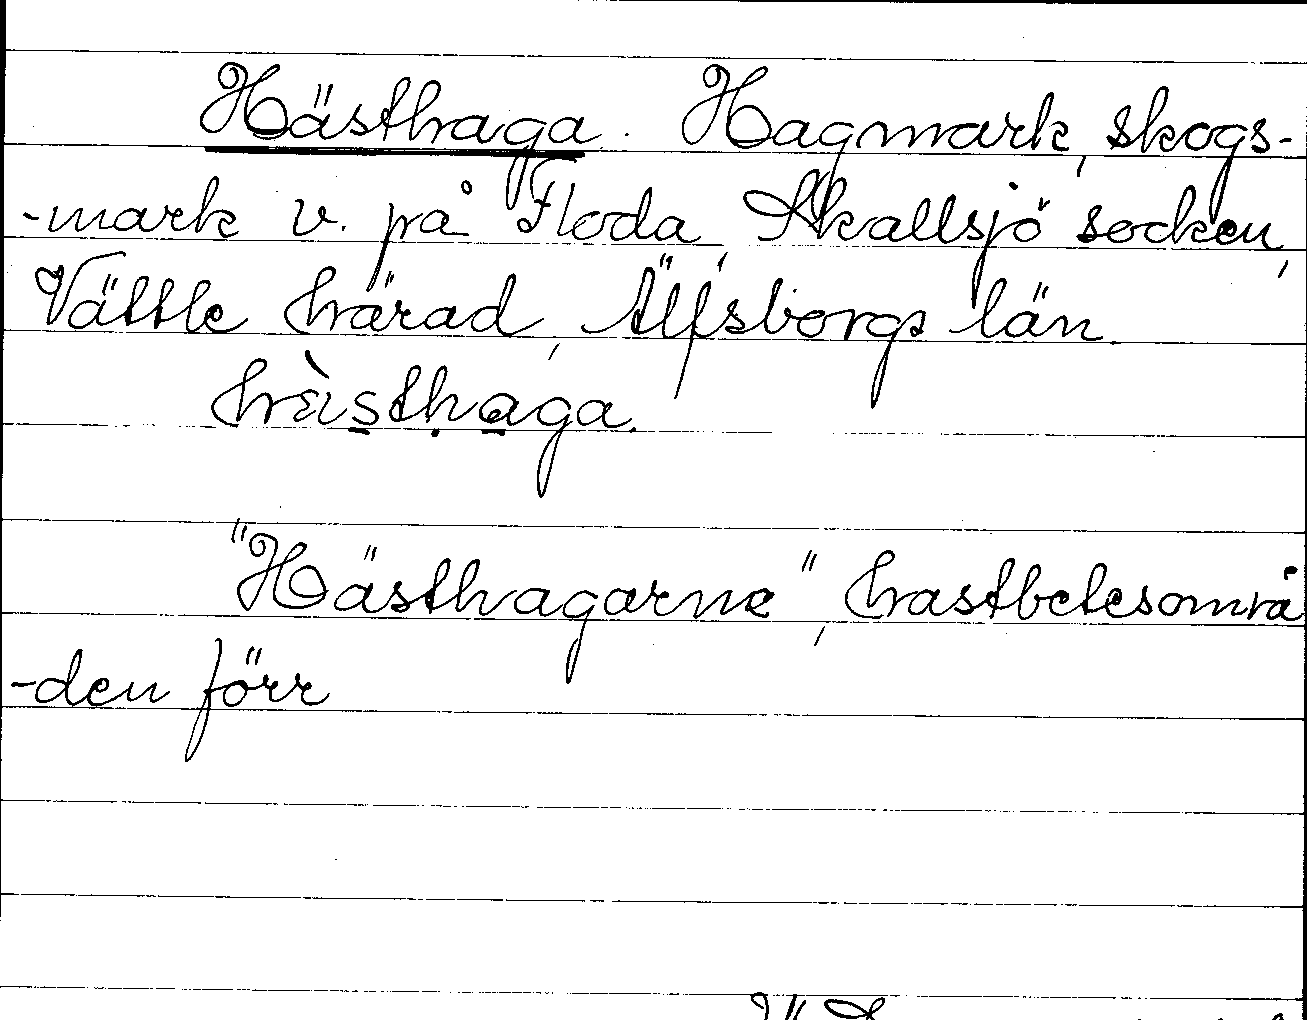 Hästhaga. Hagmark, skogs-
-mark v. på Floda, Skallsjö socken,
Vättle härad, Älfsborgs län.
hästhaga.
"Hästhagarne", hastbetesområ
-den förr